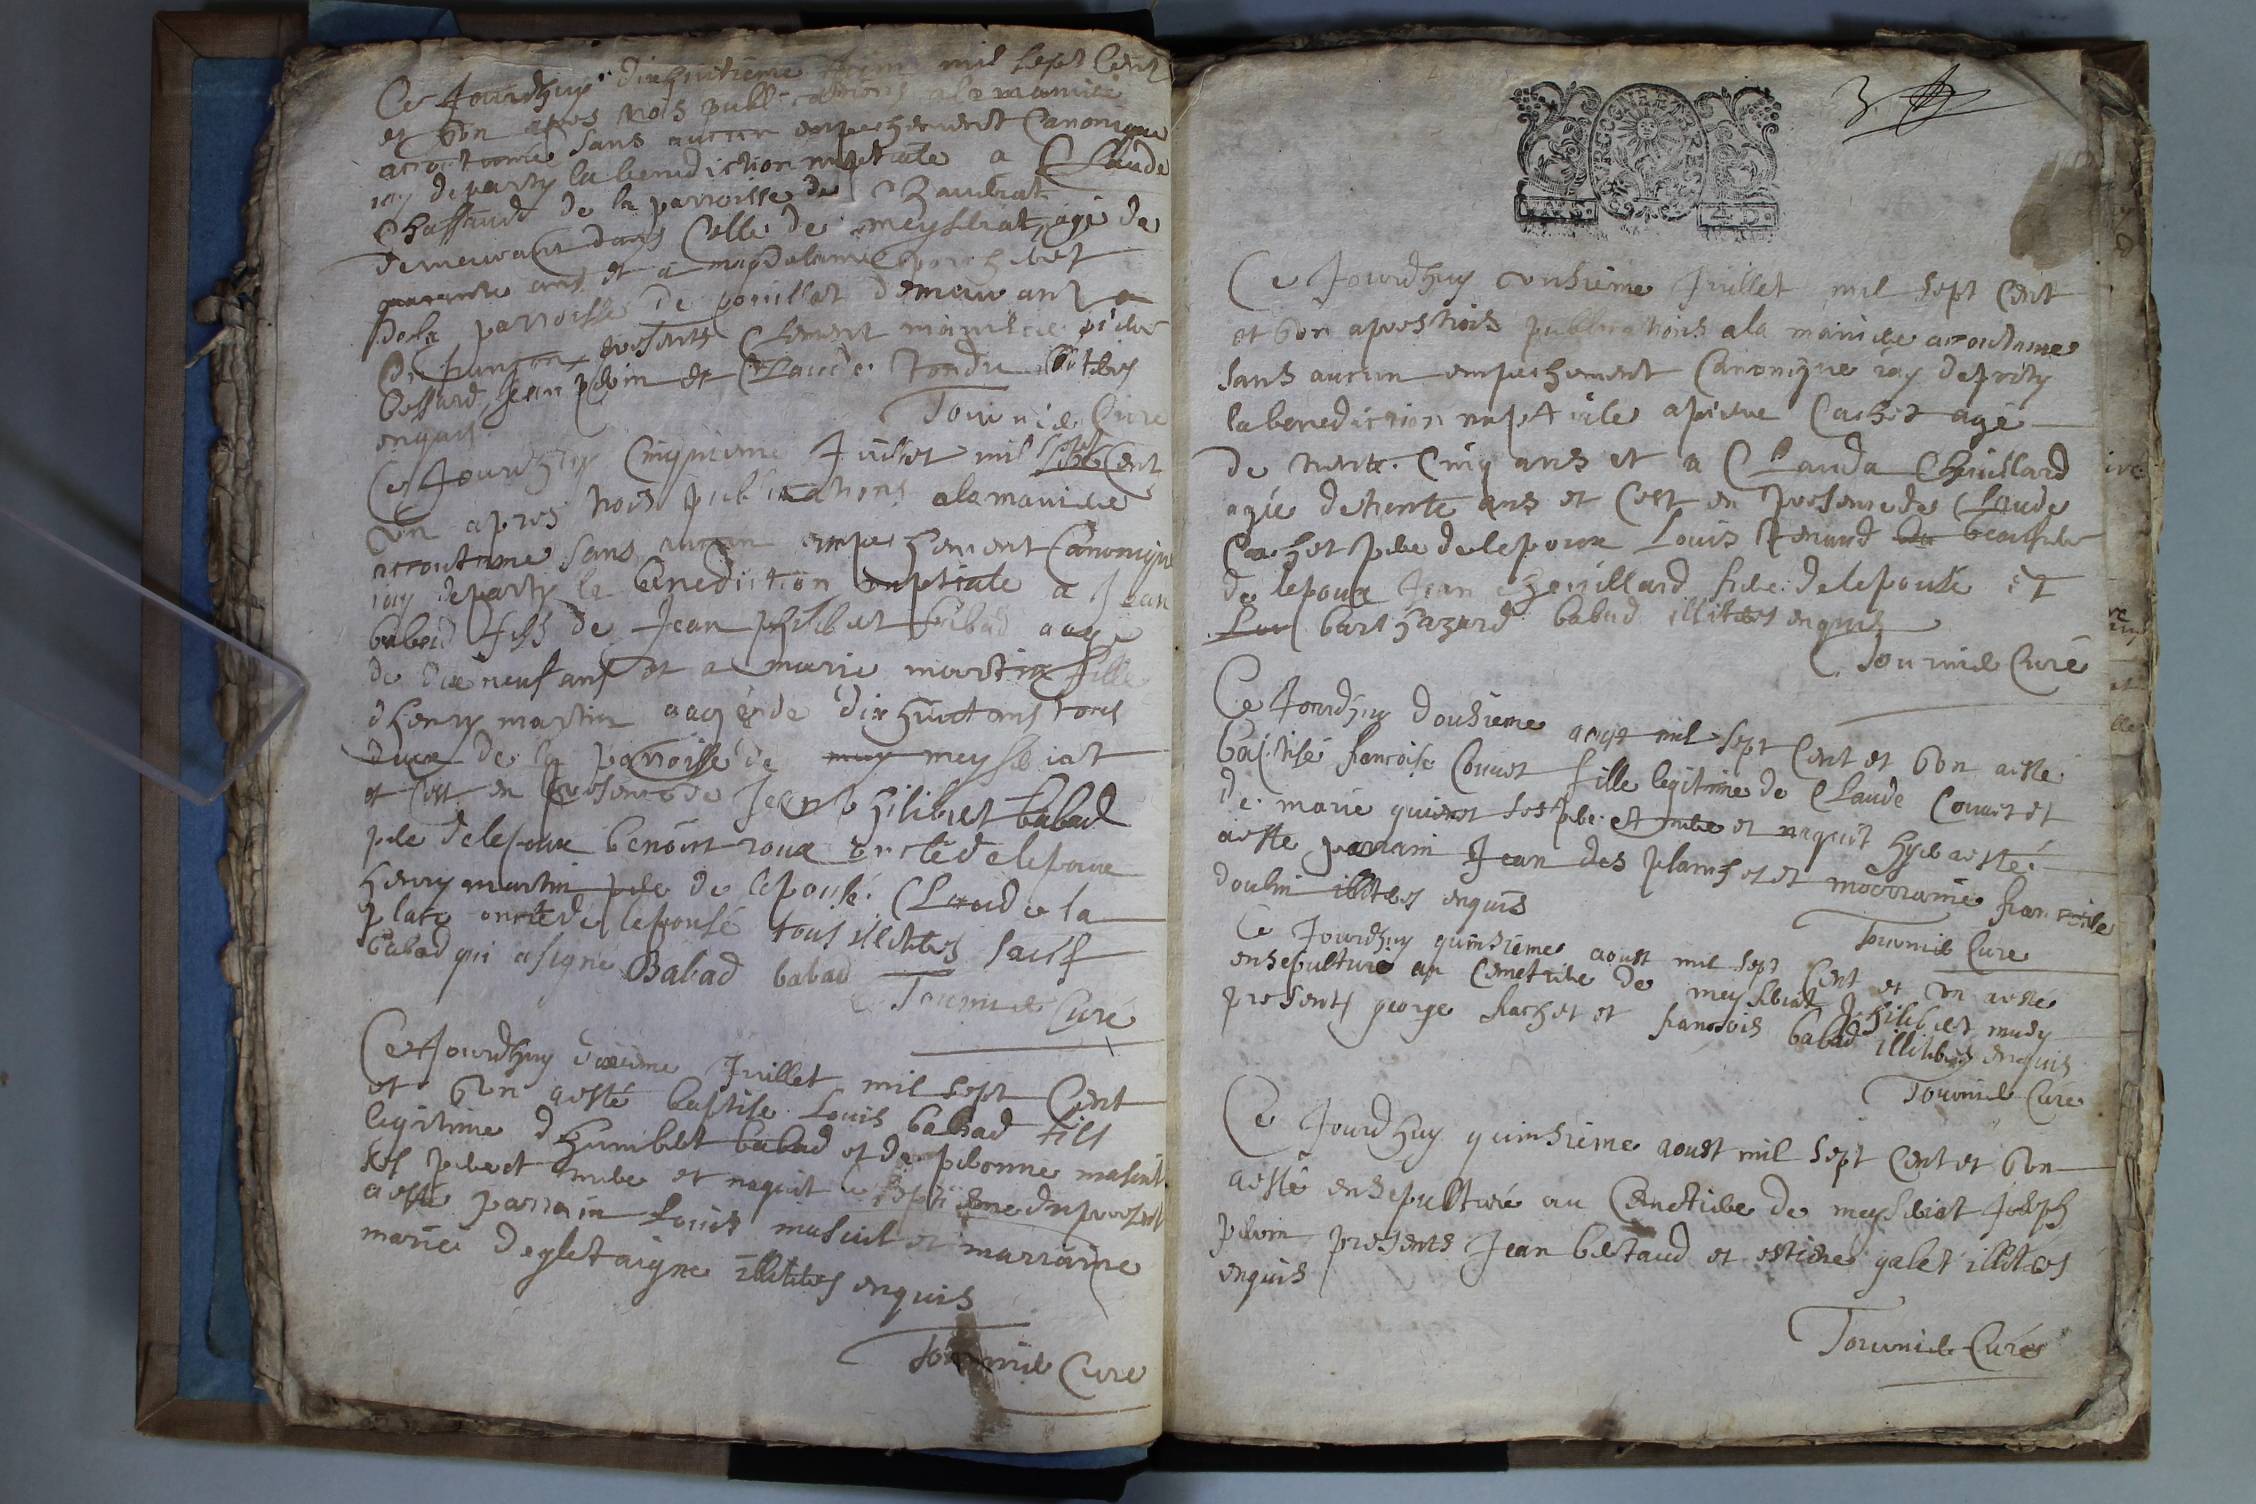 Ce Jourdhuy dixhuitieme Juin mil sept Cent
et Un apres trois publications a la maniere
accoutumée sans aucun empechement Canonique
iay departy la benediction nuptiale a Claude
Chaffaud de la parroisse de
demeurant dans Celle de meyseriat, agé de
quarante ans et a magdelaine
De la parroisse de pouillat demeurant a
presents Clement
Jean pervin et Claude Tondu illiteres
enquis Tournier Cure
Ce Jourdhuy Cinquieme Juillet mil sept Cent
Un apres trois publications a la maniere
accoutume sans aucun empechement Canonique
iay departy la benediction nuptiale a Jean
babad fils de Jean philibert babad aagé
de dix neuf ans et a marie martin fille
dhenry martin aagée de dix huict ans tous
deux de la parroisse de meyseriat
et cest en presence de Jean philibert babad
pere de lepoux benoist roux oncle de lepoux
henry martin pere de lepouse Claude la
place oncle de lepouse tous illiteres sauf
babad qui a signé Babad babad
Tournier Curé
Ce Jourdhuy dixieme Juillet mil sept Cent
et Un a esté baptisé Louis babad fils
legitime dhumbert babad et de peronne masuit
ses pere et mere et naquit le septieme du present
a esté parrain Louis masuit et marraine
marie degletaigne illiteres enquis
Tournier Cure
3
GEN. BOURGOGNE ET BRESSE
4 D.
Ce Jourdhuy onsieme Juillet mil sept Cent
et Un apres trois publications a la maniere accoutumee
sans aucun empechement Canonique iay departy
la benediction nuptiale a pierre Cachet agé
de trente Cinq ans et a Clauda Chevillard
agée de trente ans et Cest en presence de Claude
Cachet pere de lepoux Louis Renaud beaufrere
de lepoux Jean Chevillard frere de lepouse et
barthazard babad illiteres enquis
Tournier Curé
Ce Jourdhuy dousieme aoust mil sept Cent et Un a esté
baptisé francoise Convert fille legitime de Claude Convert et
de marie ses pere et mere et naquit hyer a esté
a esté parrain Jean des planches et marraine francoise
doubin illiteres enquis Tournier Cure
Ce Jourdhuy quinsieme aoust mil sept Cent et Un a esté
ensepulturé au Cemetiere de meyseriat philibert
presents george Cachet et francois babad illiteres enquis
Tournier Curé
Ce Jourdhuy quinsieme aoust mil sept Cent et Un
a esté ensepulturé au Cemetiere de meyseriat Joseph
pervin presents Jean bertaud et estiene galet illiteres
enquis
Tournier Curé